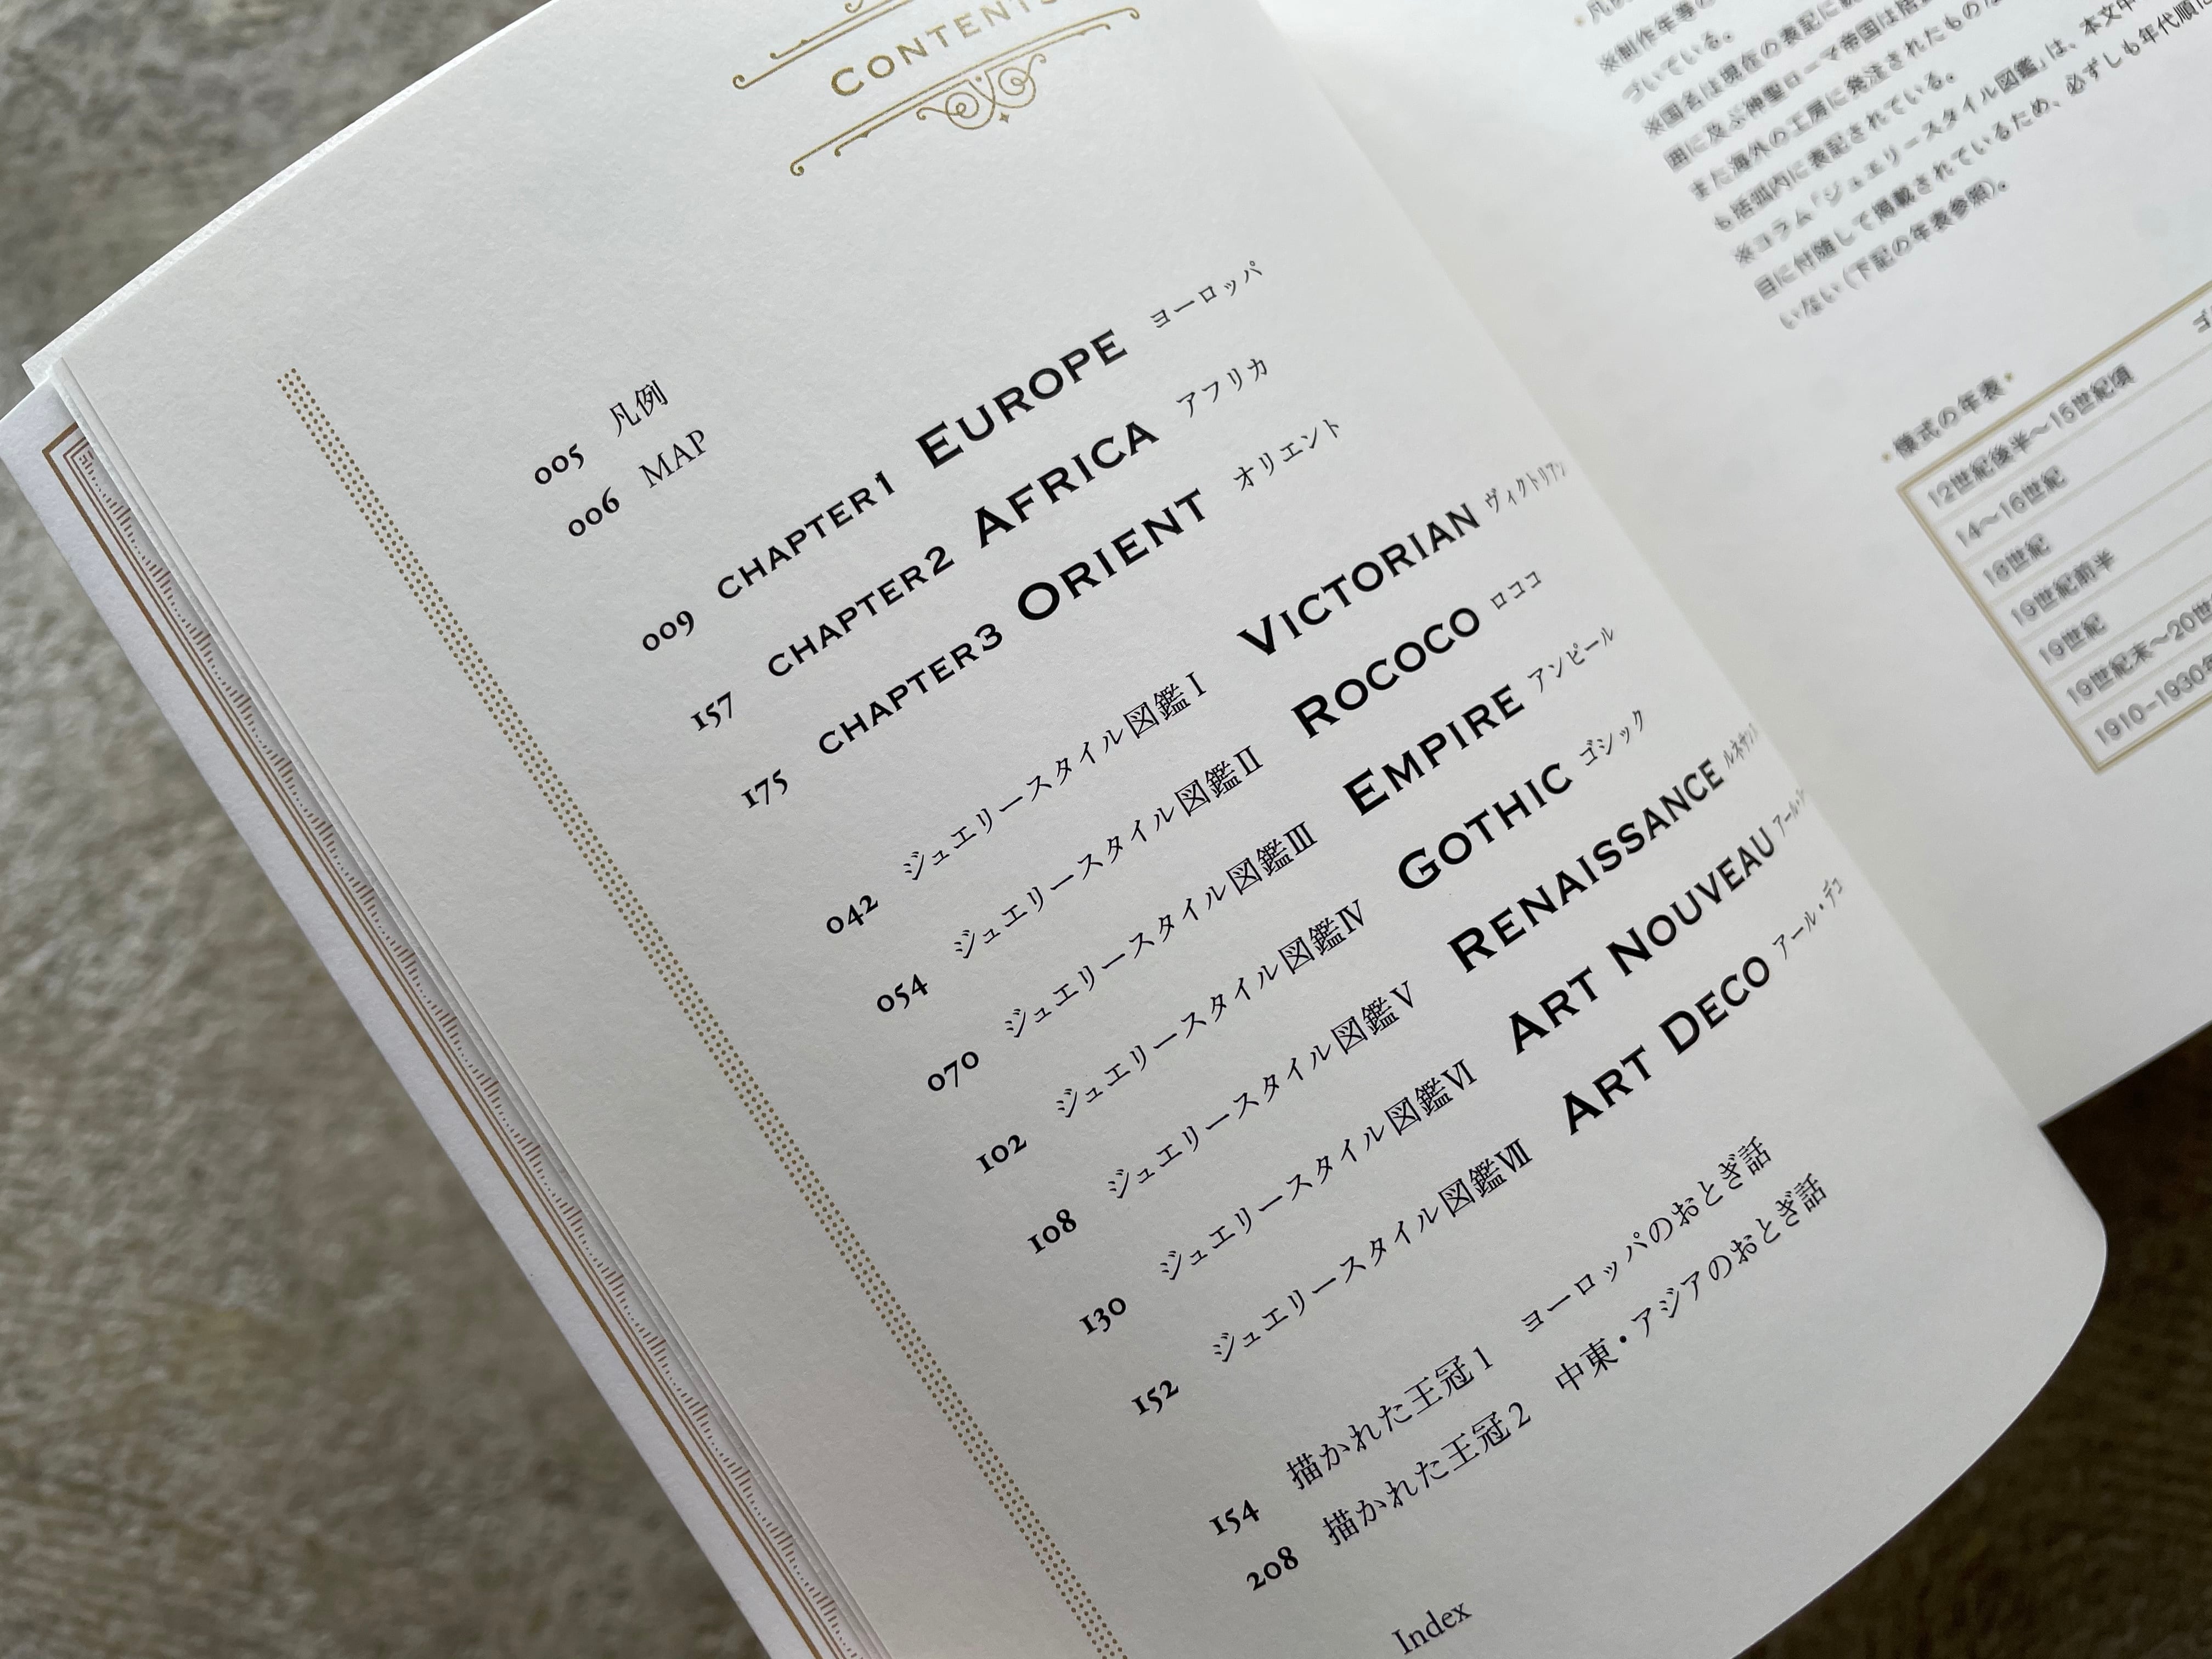 CONTENTS
005 凡例
006 MAP
009 CHAPTER1 EUROPE ヨーロッパ
157 CHAPTER2 AFRICA アフリカ
175 CHAPTER3 ORIENT オリエント
042 ジュエリースタイル図鑑Ⅰ VICTORIAN ヴィクトリアン
054 ジュエリースタイル図鑑Ⅱ ROCOCO ロココ
070 ジュエリースタイル図鑑Ⅲ EMPIRE アンピール
102 ジュエリースタイル図鑑Ⅳ GOTHIC ゴシック
108 ジュエリースタイル図鑑Ⅴ RENAISSANCE
130 ジュエリースタイル図鑑Ⅵ ART NOUVEAU
152 ジュエリースタイル図鑑Ⅶ ART DECO アール・デコ
154 描かれた王冠1 ヨーロッパのおとぎ話
208 描かれた王冠2 中東・アジアのおとぎ話
Index
※制作年等の
づいている。
※国名は現在の表記に
囲に及ぶ神聖ローマ帝国は括
また海外の工房に発注されたものな
も括弧内に表記されている。
※コラム「ジュエリースタイル図鑑」は、本文中
目に付随して掲載されているため、必ずしも年代順に
いない(下記の年表参照)。
•様式の年表•
12世紀後半〜15世紀頃
14〜16世紀
18世紀
19世紀前半
19世紀
19世紀末〜20世
1910–1930年